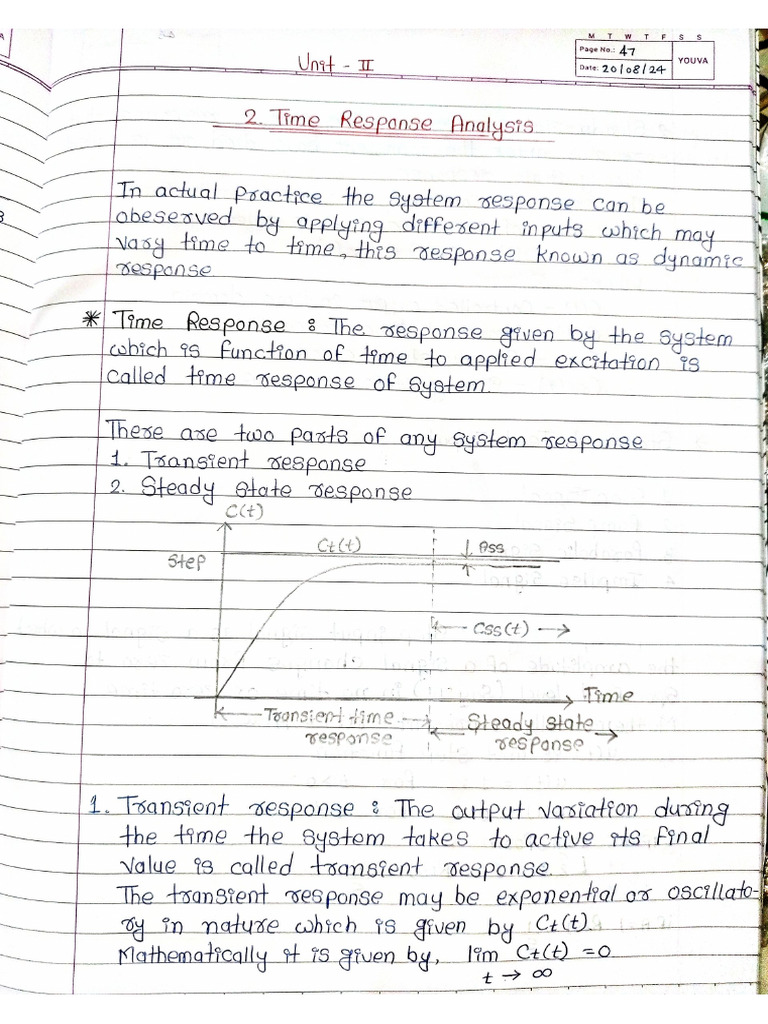 M T W T F S S
Page No.: 47
Date: 20/08/24
YOUVA
Unit - II
2. Time Response Analysis
In actual practice the system response can be
obeserved by applying different inputs which may
vary time to time, this response known as dynamic
response
* Time Response : The response given by the system
which is function of time to applied excitation is
called time response of system.
There are two parts of any system response
1. Transient response
2. Steady state response
C(t)
Step
Ct(t)
ess
Css(t)
Time
Transient time
response
Steady state
response
1. Transient response : The output variation during
the time the system takes to active its final
value is called transient response.
The transient response may be exponential or oscillato-
ry in nature which is given by Ct(t).
Mathematically it is given by, lim Ct(t) = 0
t → ∞